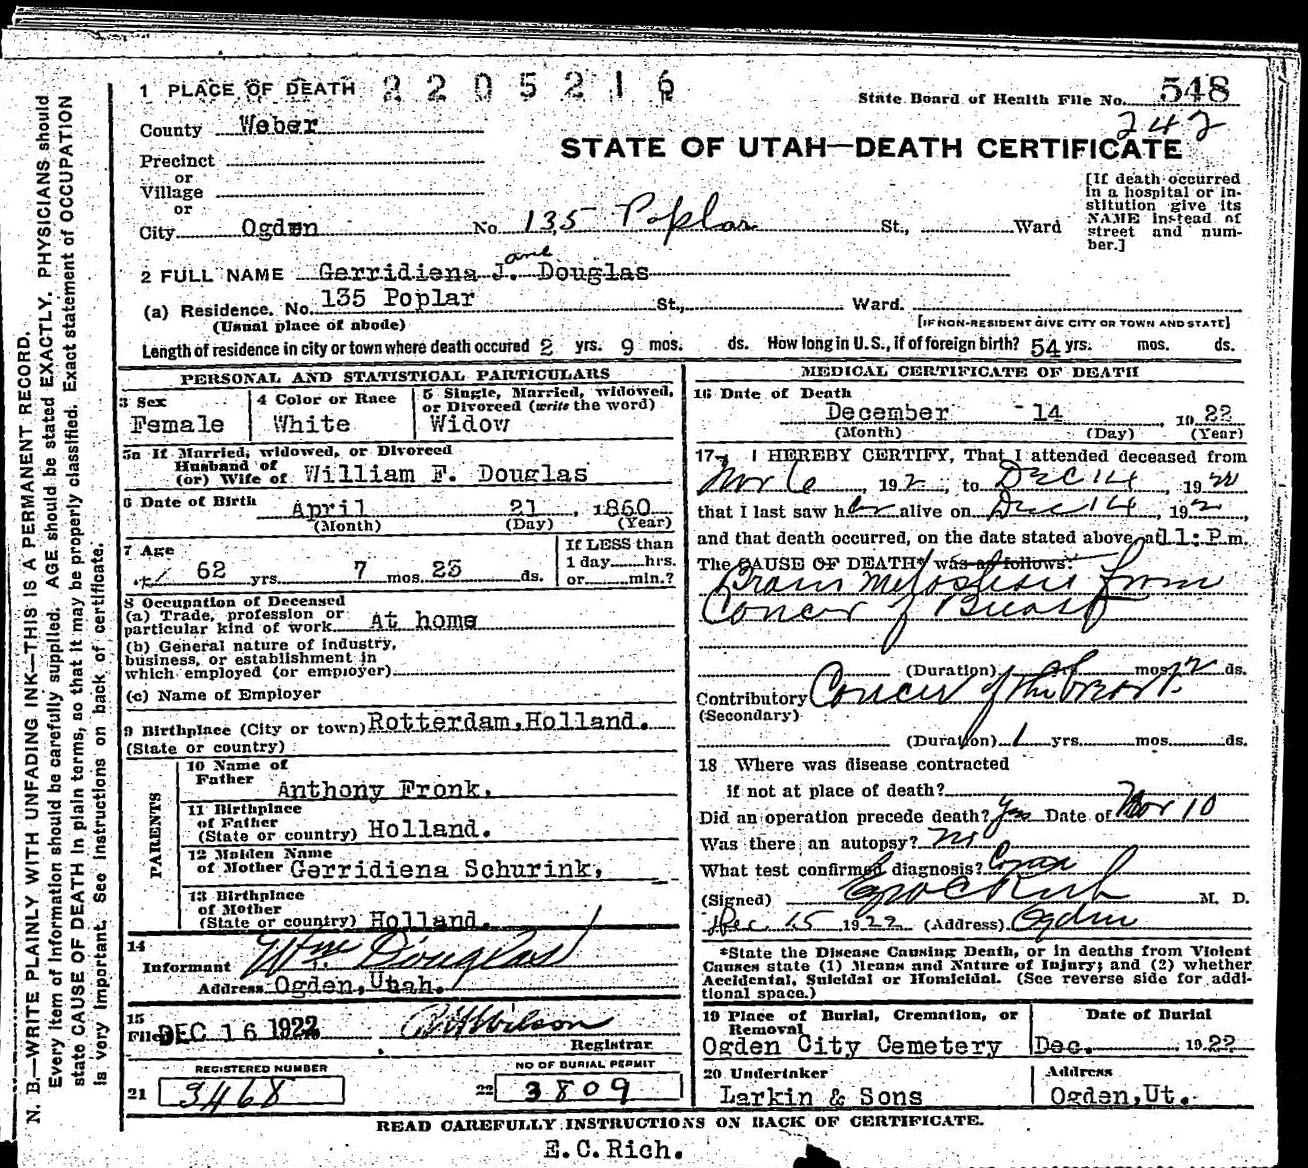 1 PLACE OF DEATH 2205216
State Board of Health File No. 548
242
County Weber
STATE OF UTAH—DEATH CERTIFICATE
Precinct
or
Village
or
City Ogden No. 135 Poplar St., Ward
[If death occurred
in a hospital or in-
stitution give its
NAME instead of
street and num-
ber.]
2 FULL NAME Gerridiena Jane Douglas
(a) Residence. No. 135 Poplar St., Ward.
(Usual place of abode) [IF NON-RESIDENT GIVE CITY OR TOWN AND STATE]
Length of residence in city or town where death occured 2 yrs. 9 mos. ds. How long in U.S., if of foreign birth? 54 yrs. mos. ds.
PERSONAL AND STATISTICAL PARTICULARS
3 Sex
Female
4 Color or Race
White
5 Single, Married, widowed,
or Divorced (write the word)
Widow
5a If Married, widowed, or Divorced
Husband of
(or) Wife of William F. Douglas
6 Date of Birth April 21, 1860
(Month) (Day) (Year)
7 Age
62 yrs. 7 mos. 23 ds.
If LESS than
1 day hrs.
or min.?
8 Occupation of Deceased
(a) Trade, profession or
particular kind of work At home
(b) General nature of industry,
business, or establishment in
which employed (or employer)
(c) Name of Employer
9 Birthplace (City or town) Rotterdam, Holland.
(State or country)
PARENTS
10 Name of
Father Anthony Fronk.
11 Birthplace
of Father
(State or country) Holland.
12 Maiden Name
of Mother Gerridiena Schurink,
13 Birthplace
of Mother
(State or country) Holland.
14
Informant Wm Douglas
Address Ogden, Utah.
15
Filed DEC 16 1922 Wilson
Registrar
REGISTERED NUMBER
21 3468
NO OF BURIAL PERMIT
22 3809
MEDICAL CERTIFICATE OF DEATH
16 Date of Death
December 14 1922
(Month) (Day) (Year)
17 I HEREBY CERTIFY, That I attended deceased from
Nov 6, 192, to Dec 14, 1922
that I last saw her alive on Dec 14, 192,
and that death occurred, on the date stated above, at 11: P.m.
The CAUSE OF DEATH* was as follows:
Brain Metastasis from
Cancer of Breast
(Duration) mos. 12 ds.
Contributory Cancer of the breast.
(Secondary)
(Duration) 1 yrs. mos. ds.
18 Where was disease contracted
if not at place of death?
Did an operation precede death? Yes Date of Nov 10
Was there an autopsy? No
What test confirmed diagnosis?
(Signed) Rich M. D.
Dec 15 1922 (Address) Ogden
*State the Disease Causing Death, or in deaths from Violent
Causes state (1) Means and Nature of Injury; and (2) whether
Accidental, Suicidal or Homicidal. (See reverse side for addi-
tional space.)
19 Place of Burial, Cremation, or
Removal
Ogden City Cemetery
Date of Burial
Dec. 1922
20 Undertaker
Larkin & Sons
Address
Ogden, Ut.
READ CAREFULLY INSTRUCTIONS ON BACK OF CERTIFICATE.
E.C.Rich.
N. B.—WRITE PLAINLY WITH UNFADING INK—THIS IS A PERMANENT RECORD.
Every item of information should be carefully supplied. AGE should be stated EXACTLY. PHYSICIANS should
state CAUSE OF DEATH in plain terms, so that it may be properly classified. Exact statement of OCCUPATION
is very important. See instructions on back of certificate.